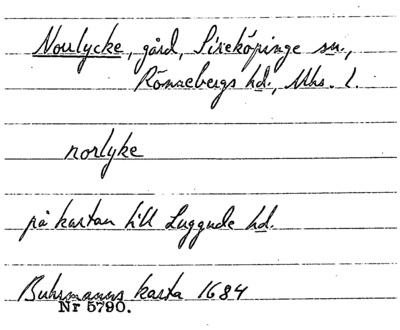 Norrlycke, gård, Sireköpinge sn.,
Rönnebergs hd., Mhs. l.
norlyke
på kartan till Luggude hd.
Buhrmanns karta 1684
Nr 5790.